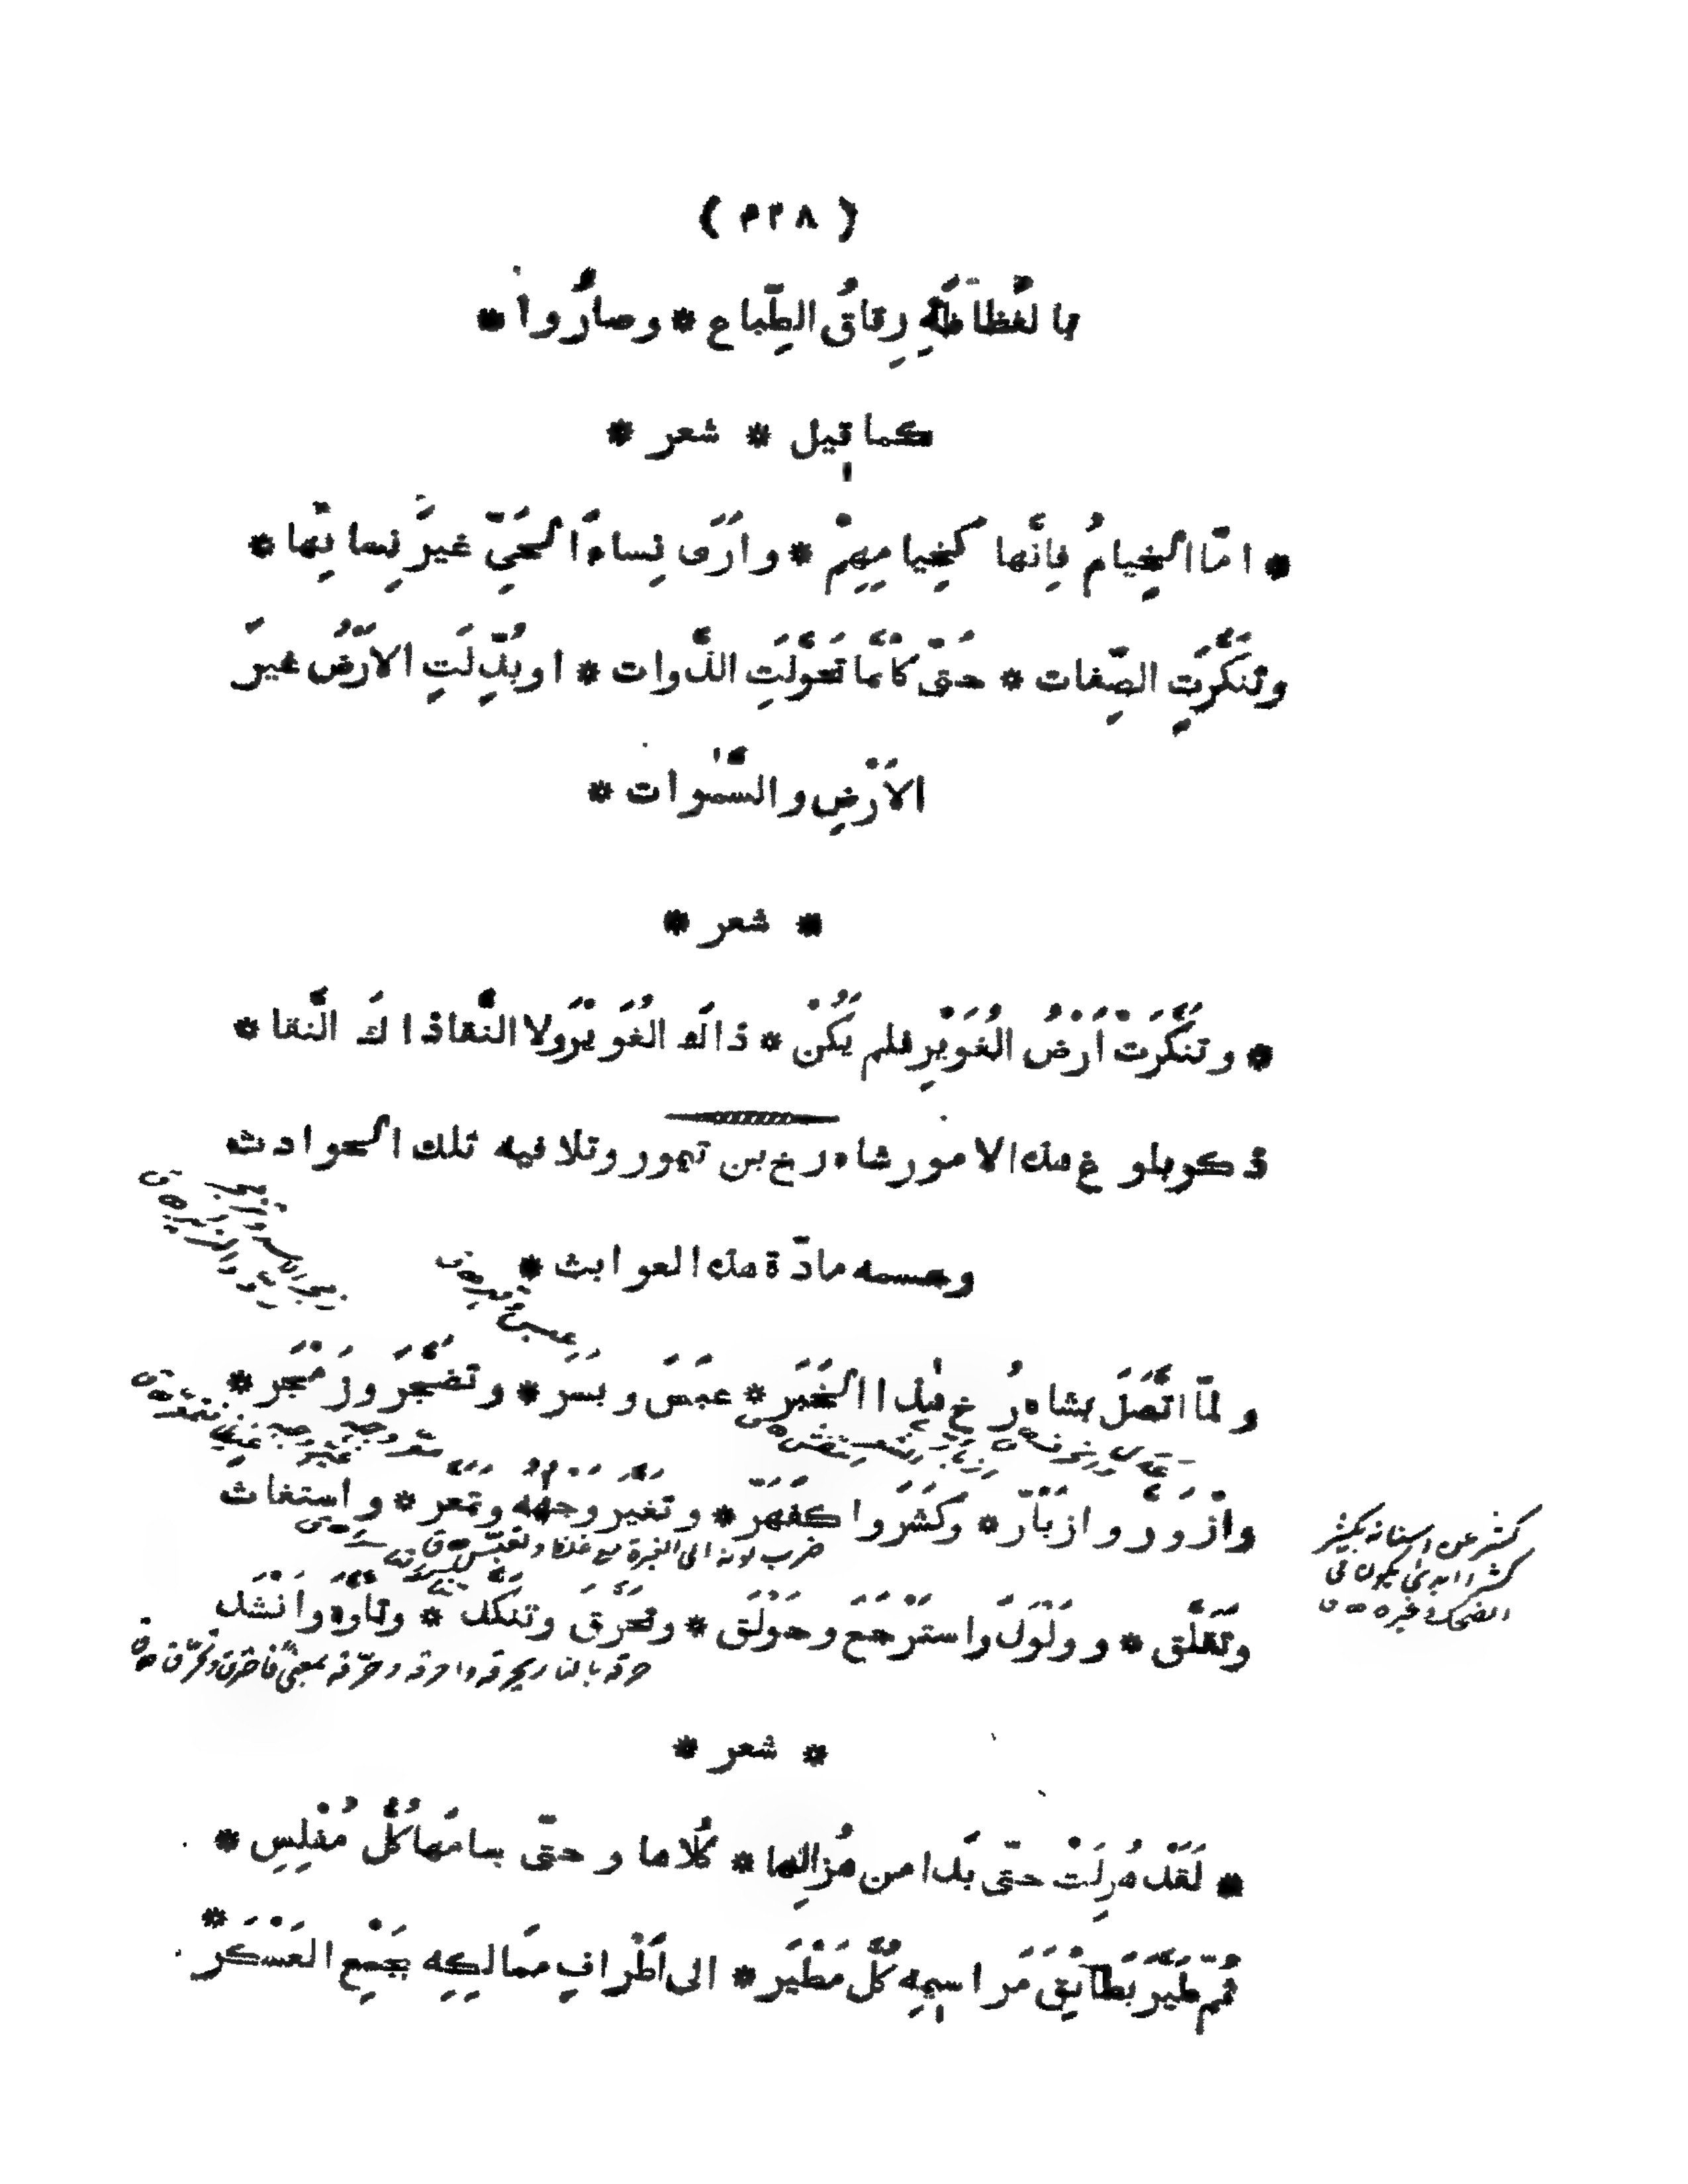 ( ٤٢٨ )
بالغَظاظَةِ رِقاقُ الطِّباع * وصارُوا *
كما قيل * شعر *
* امّا الخِيامُ فاِنَّها كخِيامِهِمْ * وارَى نِساءَ الحَيِّ غيرَ نِسائِها *
وتنكَّرَتِ الصِّفات * حَتّى كاَنَّما تَحَوَّلَتِ الذَّوات * اوبُدِّلَتِ الاَرْضُ غيرَ
الاَرْضِ والسَّمٰوات *
* شعر *
* وتنَكَّرَتْ اَرْضُ الغُوَيْرِ فلم يَكُنْ * ذاكَ الغُوَيْرُ ولا النَّقا ذاكَ النَّقا *
ذكر بلوغ هذه الامور شاه رخ بن تيمور وتلافيه تلك الحوادث
وحسمه مادّة هذه العوابث *
ولمّا اتَّصَلَ بشاه رُخ هٰذا الخَبَر * عبَسَ وبسَر * وتضَجَّرَ وزَمْجَر *
وازْوَرَّ وازبَأَرّ * وكَشَرَ واكفَهَرّ * وتغَيَّرَ وجْهُهُ وتمَعَّر * واستغاث
وتقَلَّق * وولْوَلَ واستَرْجَعَ وحَوْلَق * وتحَرَّقَ وتنَكَّد * وتأَوَّهَ وانْشَد
كشر عن اسنانه يكشر
كشرا ابدى يكون فى
الضحك وغيره ق
حرقه بالنار يحرقه واحرقه وحرّقه بمعنىً فاحترق وتحرّق ق
* شعر *
* لَقَدْ هُزِلَتْ حتّى بَدا من هُزالِها * كُلاها وحتّى سامَها كُلُّ مُفْلِسِ *
ثُمّ طَيَّرَ بَطائِقَ مَراسِمِهِ كُلَّ مَطْيَر * الى اَطْرافِ مَمالِكِهِ بجَمْعِ العَسْكَر *